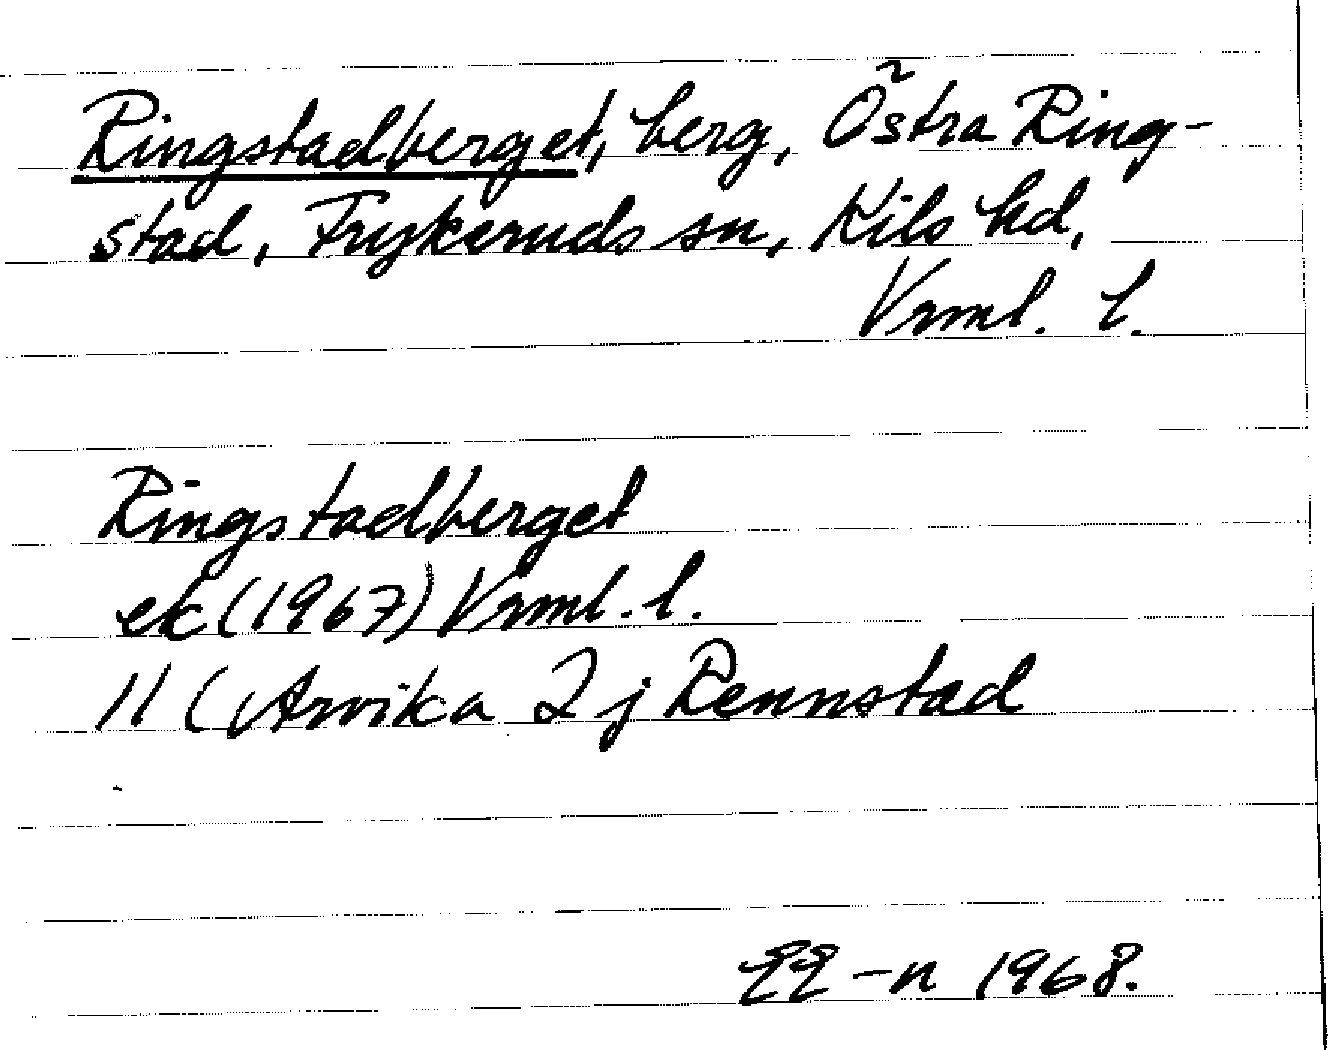 Ringstadberget, berg, Östra Ring-
stad, Frykeruds sn, Kils hd,
Vrml. l.
Ringstadberget
ek (1967) Vrml. l.
11 ( Arvika 2 j Rennstad
EE-n 1968.